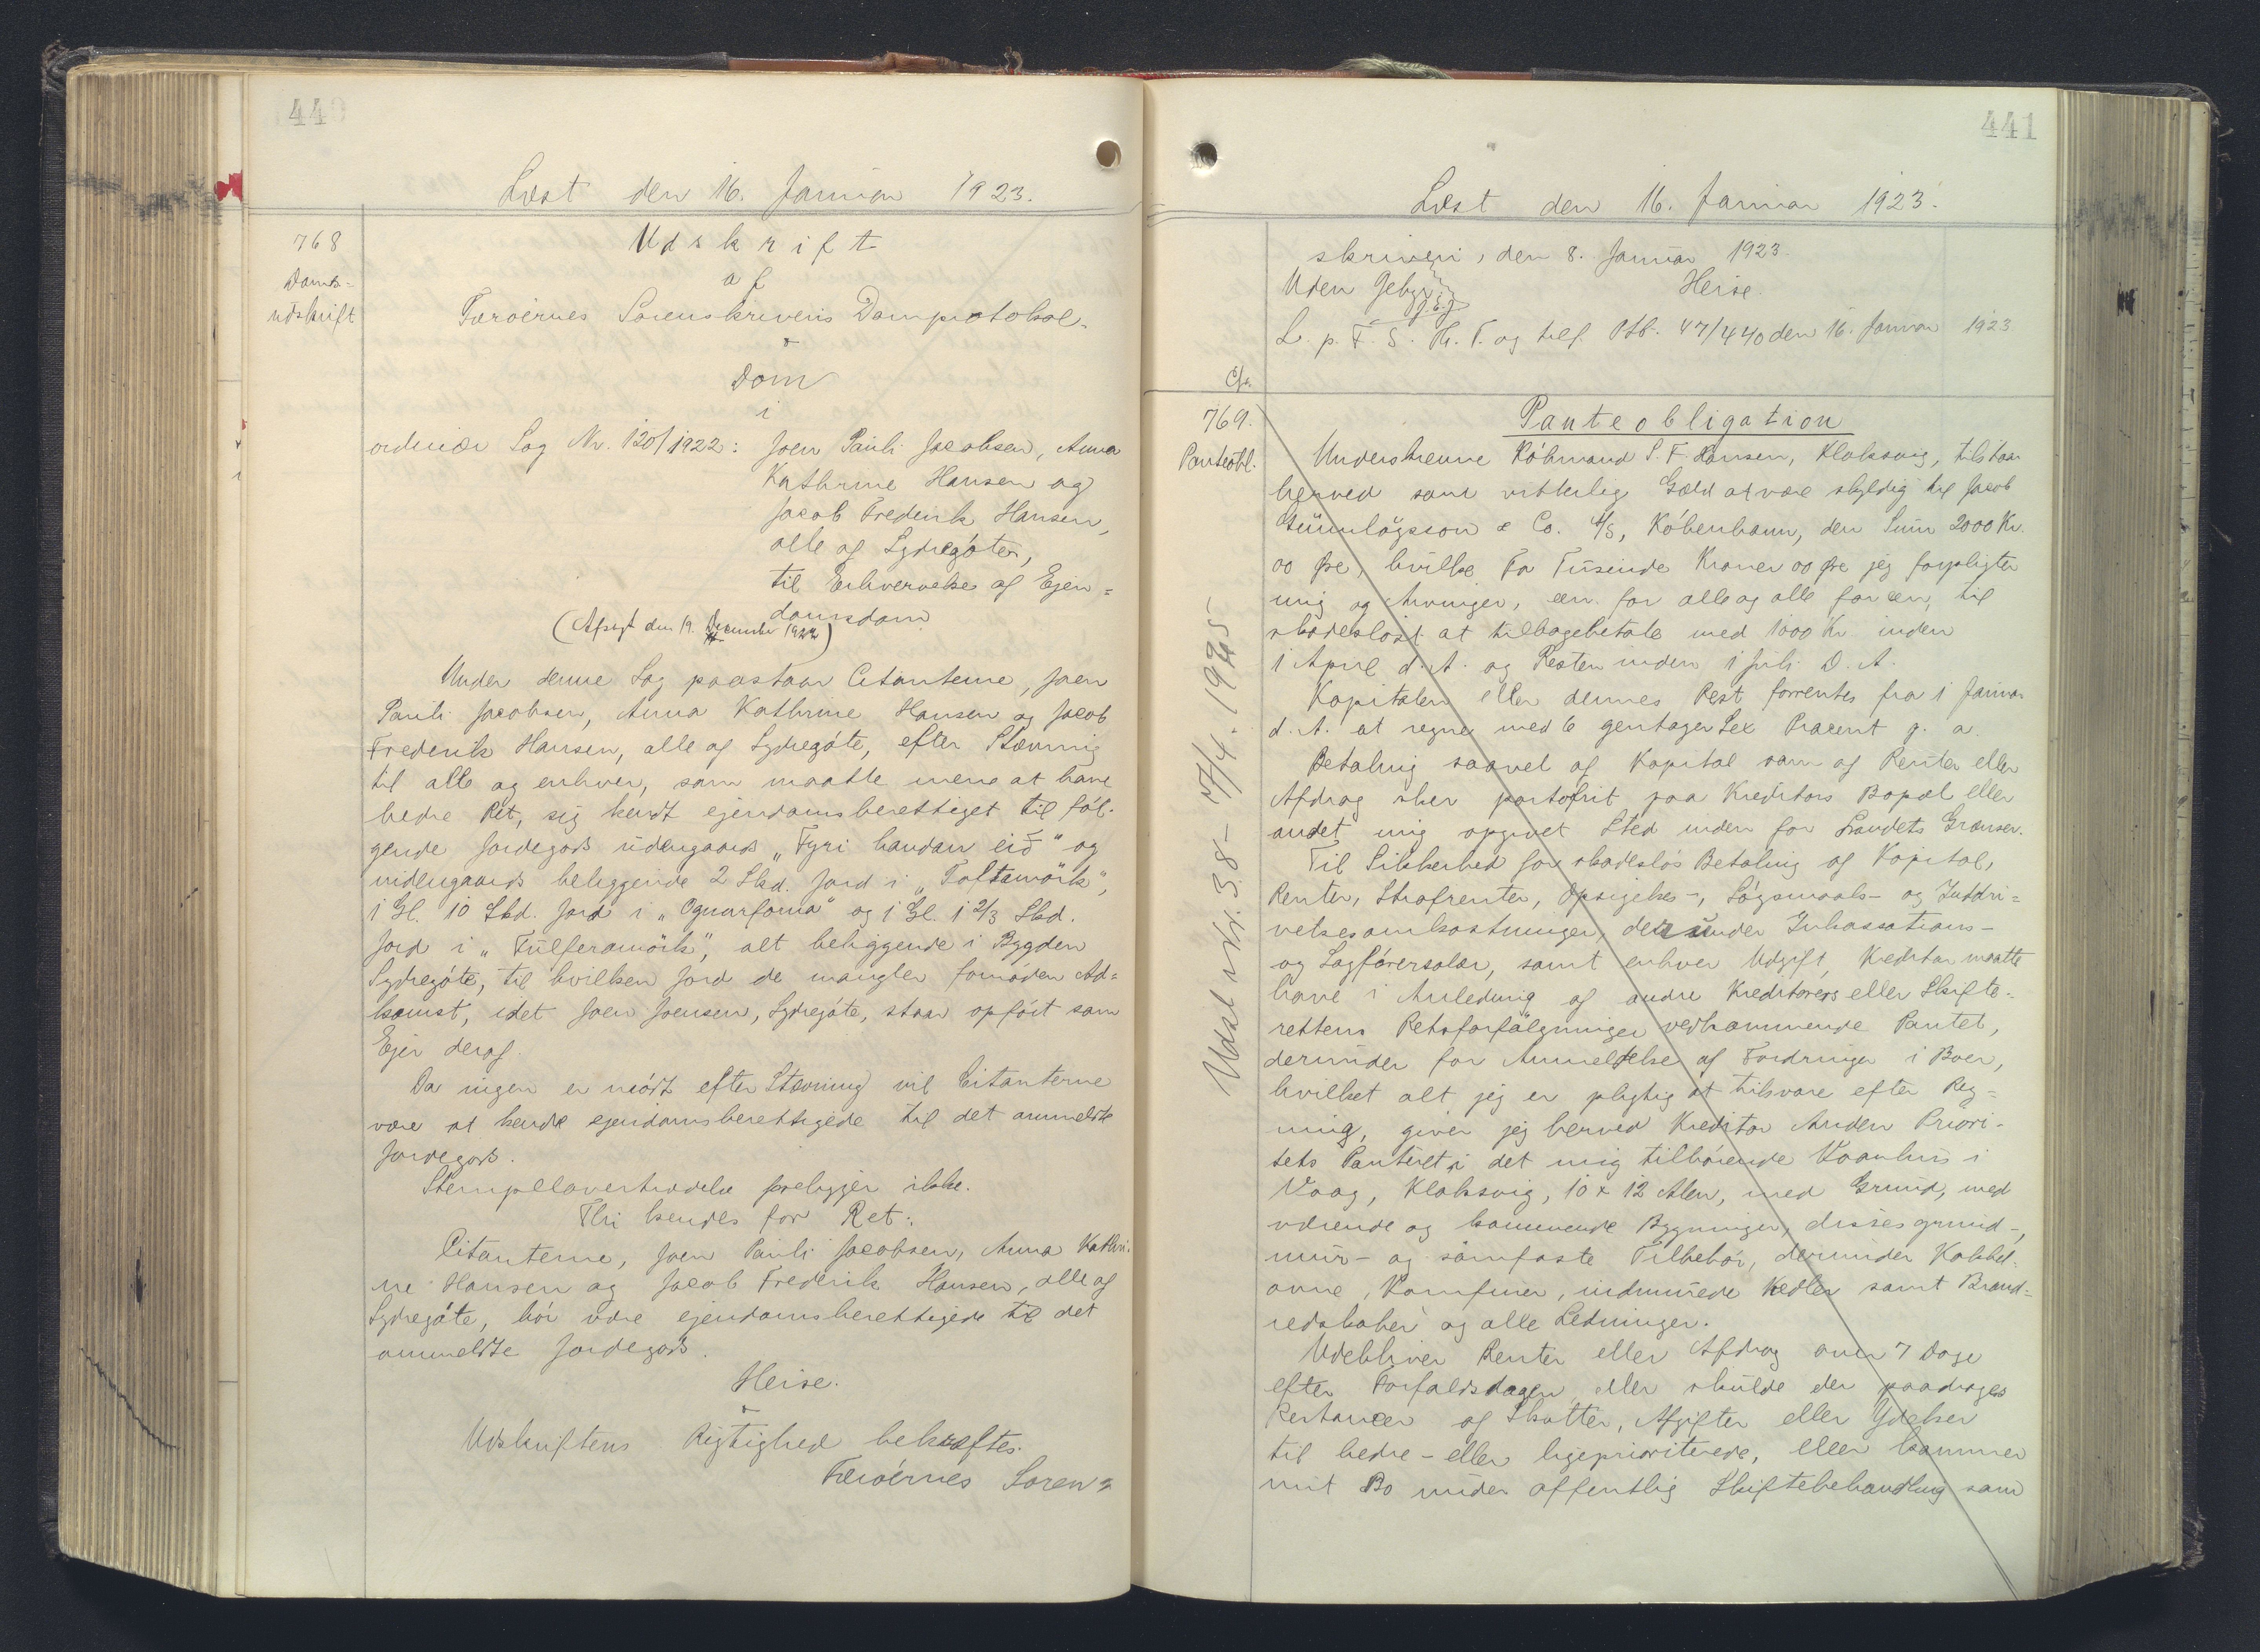 440
Læst den 16. Januar 1923.
768
Doms-
udskrift
Udskrift
af
Færøernes Sorenskriveris Domprotokol.
Dom
i
ordinær Sag Nr. 120/1922: Joen Pauli Jacobsen, Anna
Kathrine Hansen og
Jacob Frederik Hansen,
alle af Sydregøte,
til Erhvervelse af Ejen-
domsdom
(Afsagt den 19. December 1922)
Under denne Sag paastaar Citanterne, Joen
Pauli Jacobsen, Anna Kathrine Hansen og Jacob
Frederik Hansen, alle af Sydregøte, efter Stævning
til alle og enhver, som maatte mene at have
bedre Ret, sig kendt ejendomsberettiget til føl-
gende Jordegods udengaards „Fyri handan eið" og
indengaards beliggende 2 Skd. Jord i „Toftamörk",
1 Gl. 10 Skd. Jord i „Ognarforna" og 1 Gl. 1 2/3 Skd.
Jord i „Fulferamörk", alt beliggende i Bygden
Sydregøte, til hvilken Jord de mangler fornøden Ad-
komst, idet Joen Joensen, Sydregøte, staar opført som
Ejer deraf.
Da ingen er mødt efter Stævning vil Citanterne
være at kende ejendomsberettigede til det anmeldte
Jordegods.
Stempelovertrædelse foreligger ikke.
Thi kendes for Ret:
Citanterne, Joen Pauli Jacobsen, Anna Kathri-
ne Hansen og Jacob Frederik Hansen, alle af
Sydregøte, bør være ejendomsberettigede til det
anmeldte Jordegods.
Heise.
Udskriftens Rigtighed bekræftes.
Færøernes Soren-
441
Læst den 16. Januar 1923.
skriveri, den 8. Januar 1923.
Uden Gebyr Heise.
L. p. F. S. Th. T. og tilf. Ptb. 47/440 den 16. Januar 1923
769.
Panteobl.
Panteobligation
Underskrevne Købmand S. F. Hansen, Klaksvig, tilstaar
herved som vitterlig Gæld at være skyldig til Jacob
Gunnløgsson & Co. A/S, København, den Sum 2000 Kr.
00 Øre, hvilke To Tusinde Kroner 00 Øre jeg forpligter
mig og Arvinger, een for alle og alle for een, til
skadesløst at tilbagebetale med 1000 Kr inden
1 April d. A. og Resten inden 1 Juli D. A.
Kapitalen eller dennes Rest forrentes fra 1 Januar
d. A. at regne med 6 gentager Sex Procent p. a.
Betaling saavel af Kapital som af Renter eller
Afdrag sker portofrit paa Kreditors Bopæl eller
andet mig opgivet Sted inden for Landets Grænser.
Til Sikkerhed for skadesløs Betaling af Kapital,
Renter, Strafrenter, Opsigelses-, Søgsmaals- og Inddri-
velsesomkostninger, derunder Inkassations-
og Sagførersalær, samt enhver Udgift, Kreditor maatte
have i Anledning af andre Kreditorers eller Skifte-
rettens Retsforfølgninger vedkommende Pantet,
derunder for Anmeldelse af Fordringer i Boer,
hvilket alt jeg er pligtig at tilsvare efter Reg-
ning, giver jeg herved Kreditor Anden Priori-
tets Panteret i det mig tilhørende Vaanhus i
Vaag, Klaksvig, 10 x 12 Alen, med Grund, med
værende og kommende Bygninger, disses grund-,
mur- og sømfaste Tilbehør, derunder Kakkel-
ovne, Komfurer, indmurede Kedler samt Brand-
redskaber og alle Ledninger.
Udebliver Renter eller Afdrag over 7 Dage
efter Forfaldsdagen, eller skulde der paadrages
Restancer af Skatter, Afgifter eller Ydelser
til bedre- eller ligeprioriterede, eller kommer
mit Bo under offentlig Skiftebehandling som
Udsl. Nr. 38- 17/4. 1925